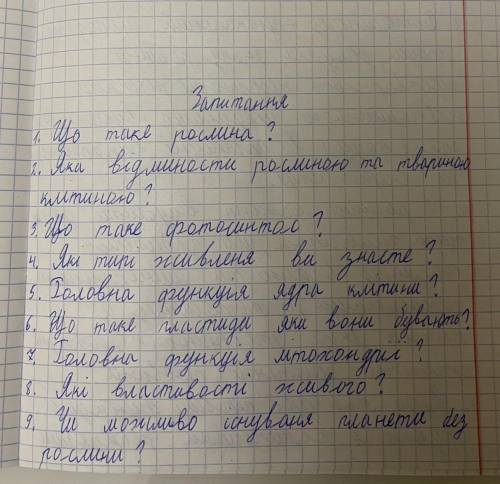 Запитання
1. Що таке рослина?
2. Яка відминости рослиною та твариною
клітиною?
3. Що таке фотосинтос?
4. Які типі живленя ви знаєте?
5. Головна функція ядра клітини?
6. Що таке пластиди яки вони бувають?
7. Головна функція мітохондрії?
8. Які властивості живого?
9. Чи можливо існуваня планети без
рослини?